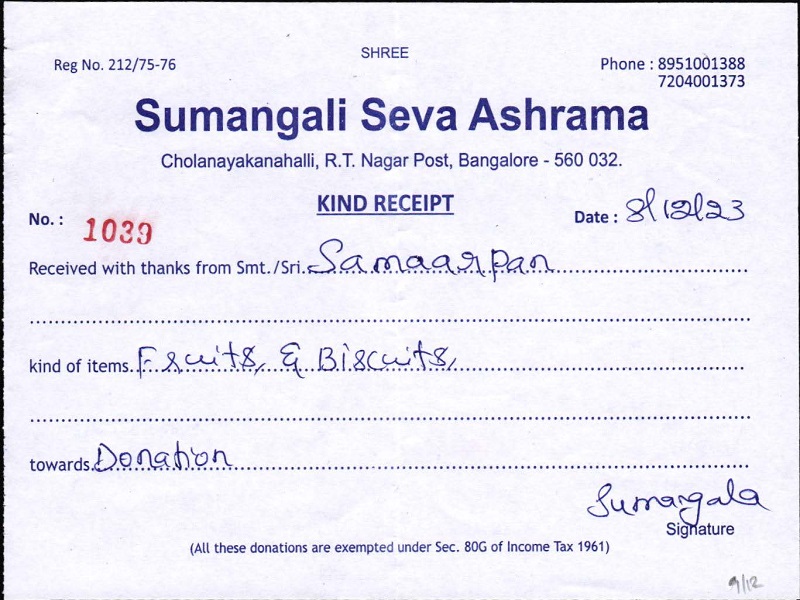 SHREE
Reg No. 212/75-76
Phone : 8951001388
7204001373
Sumangali Seva Ashrama
Cholanayakanahalli, R.T. Nagar Post, Bangalore - 560 032.
KIND RECEIPT
No. : 1039
Date : 8/12/23
Received with thanks from Smt./Sri. Samaarpan
kind of items. Fruits, & Biscuits,
towards. Donation
Sumangala
Signature
(All these donations are exempted under Sec. 80G of Income Tax 1961)
9/12